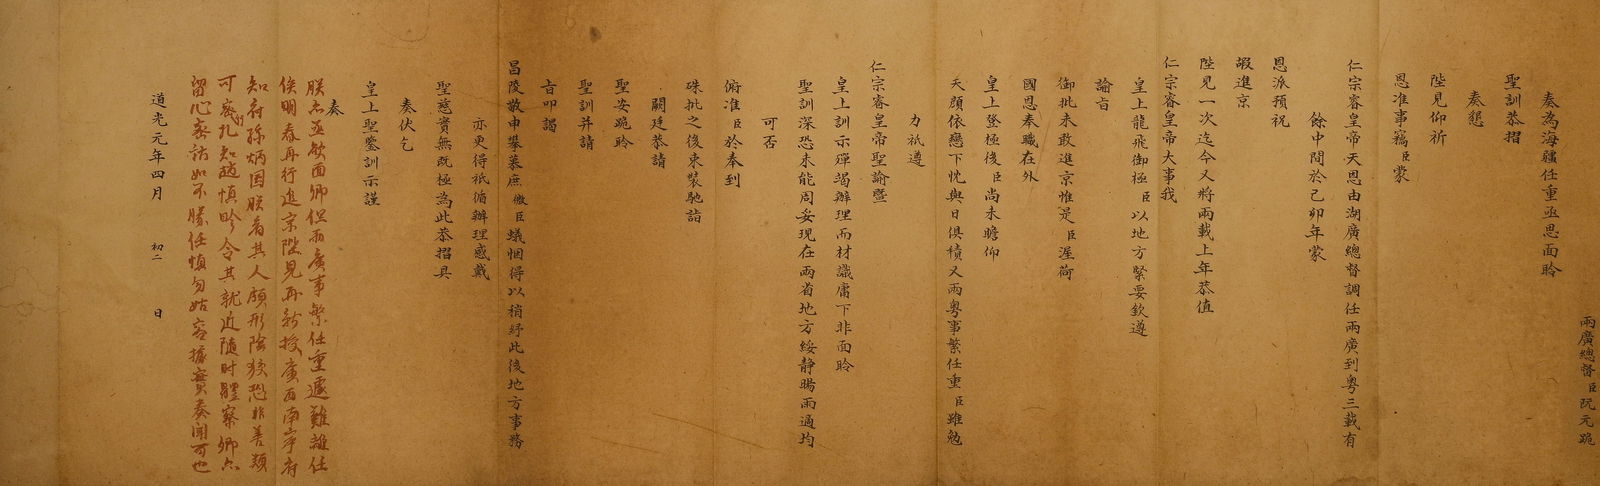 兩廣總督臣阮元跪
奏為海疆任重亟思面聆
聖訓恭摺
奏懇
陛見仰祈
恩准事竊臣蒙
仁宗睿皇帝天恩由湖廣總督調任兩廣到粵三載有
餘中間於己卯年蒙
恩派預祝
嘏進京
陛見一次迄今又將兩載上年恭值
仁宗睿皇帝大事我
皇上龍飛御極臣以地方緊要欽遵
諭旨
御批未敢進京惟是臣渥荷
國恩奉職在外
皇上登極後臣尚未瞻仰
天顏依戀下忱與日俱積又兩粵事繁任重臣雖勉
力祇遵
仁宗睿皇帝聖諭暨
皇上訓示殫竭辦理而材識庸下非面聆
聖訓深恐未能周妥現在兩省地方綏靜暘雨適均
可否
俯准臣於奉到
硃批之後束裝馳詣
闕廷恭請
聖安跪聆
聖訓并請
旨叩謁
昌陵敬申攀慕庶微臣蟻悃得以稍紓此後地方事務
亦更得祇循辦理感戴
聖慈實無既極為此恭摺具
奏伏乞
皇上聖鑒訓示謹
奏
朕亦亟欲面卿但兩廣事繁任重遽難離任
俟明春再行進京陛見再新授廣西南寧府
知府孫炳因朕看其人頗形陰狡恐非善類
可密行札知趙慎畛令其就近隨時體察卿亦
留心密訪如不勝任慎勿姑容據實奏聞可也
道光元年四月 初二 日